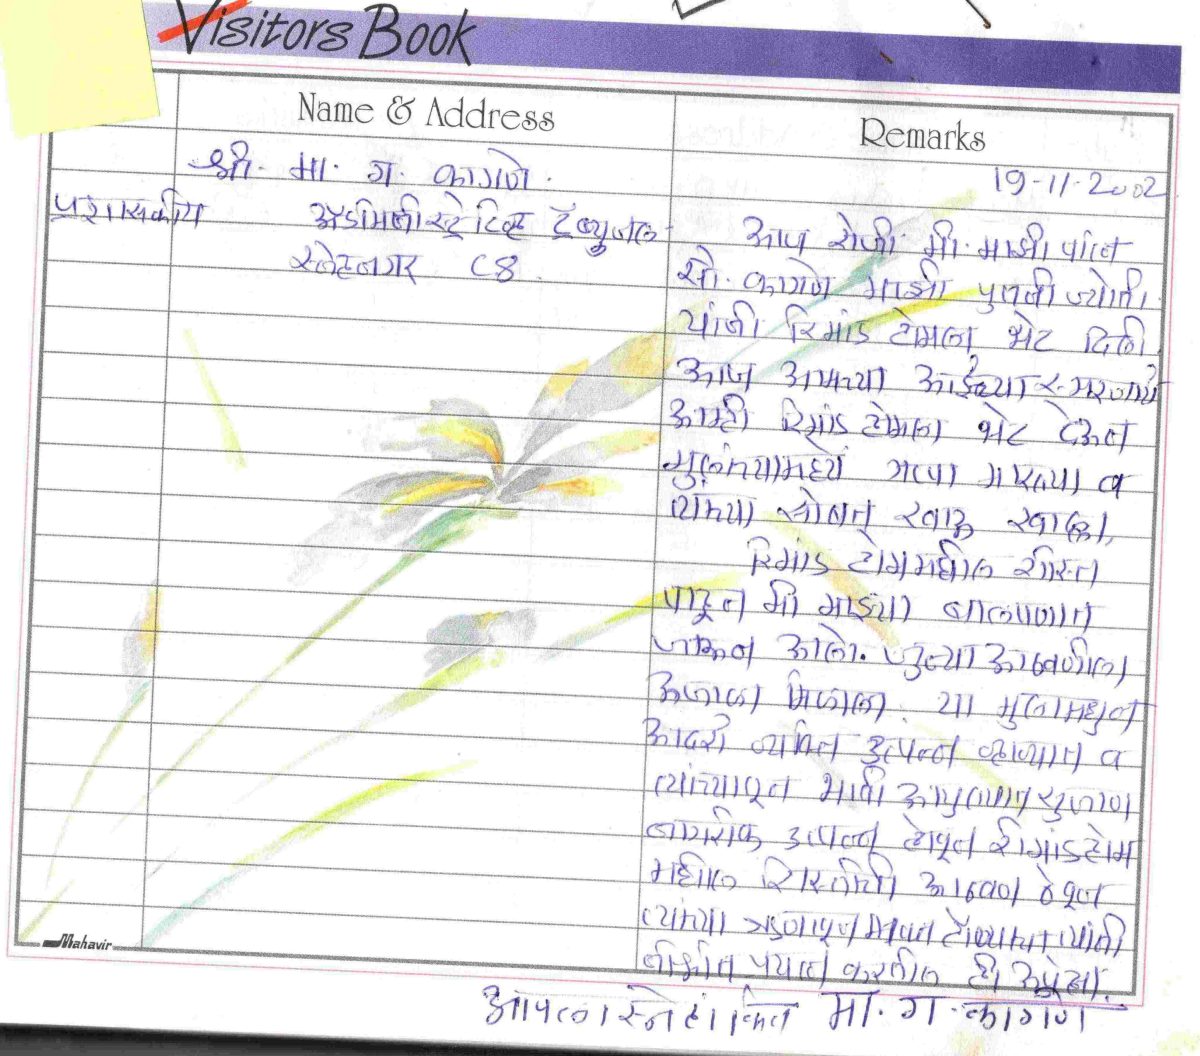 Visitors Book
Name & Address
Remarks
श्री. मा. ग. कागणे.
19-11-2002
प्रशासकीय अॅडमिनीस्ट्रेटिव्ह ट्रॅब्युनल
स्नेहनगर C8
आज रोजी मी माझी पत्नि
सौ. कागणे माझी पुतनी ज्योती
यांनी रिमांड होमला भेट दिली
आज आमच्या आईच्या स्मरणार्थ
आम्ही रिमांड होमला भेट देऊन
मुलांच्यामध्ये गप्पा मारल्या व
त्यांच्या सोबत खाऊ खाल्ला.
रिमांड होममधील शीस्त
पाहून मी माझ्या बालपणात
आलो. जुन्या आठवणीला
उजाळा मिळाला. या मुलामधुन
आदर्श व्यक्ति उत्पन्न व्हाव्यात व
त्यांच्यातून भावी आयुष्यात सुजाण
नागरिक उत्पन्न होवून रिमांडहोम
मधील शिस्तीची आठवण ठेवून
त्यांच्या मदत त्यांनी
प्रयत्न करतील ही अपेक्षा.
आपला स्नेहांकित मा. ग. कागणे
Mahavir